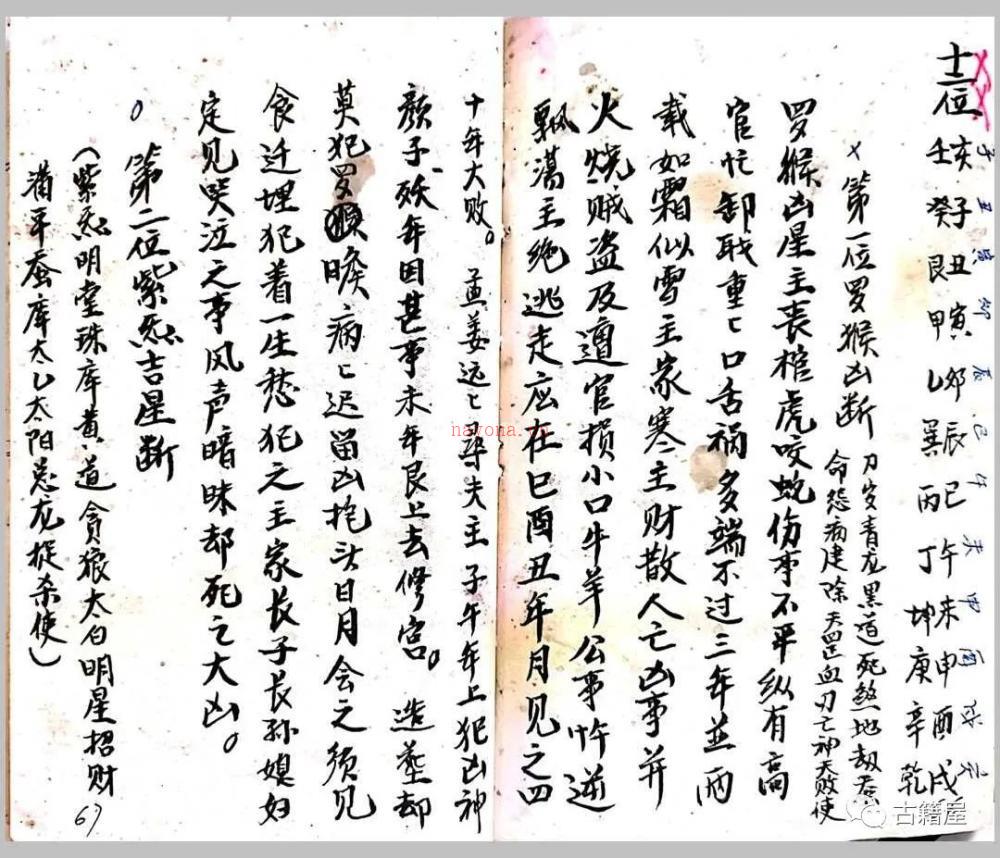 十二位
子丑寅卯辰巳午未申酉戌亥
亥子丑寅卯辰巳午未申酉戌
壬癸艮甲乙巽丙丁坤庚辛乾
×第一位罗猴凶断
刀岁青龙黑道死煞地劫
命怨病建除天罡血刃亡神天败使
罗猴凶星主丧棺虎咬蛇伤事不平纵有高
官忙卸职重匕口舌祸多端不过三年並两
载如霜似雪主家寒主财散人亡凶事并
火烧贼盗及遭官损小口牛羊公事忤逆
飘蕩主绝逃走应在巳酉丑年月见之四
十年大败。孟姜远匕寻夫主子午年上犯凶神
颜子妖年因甚事未年艮上去修宫。造塟却
莫犯罗睺病匕迟留凶抱头日月会之须见
食迁埋犯着一生愁犯之主家长子长孙媳妇
定见哭泣之事风声暗昧却死亡大凶。
○第二位紫炁吉星断
(紫炁明堂珠库黄道贪狼太白明星招财
蚕库太乙太阳总龙捉杀使)
67
nayona.cn
古籍屋